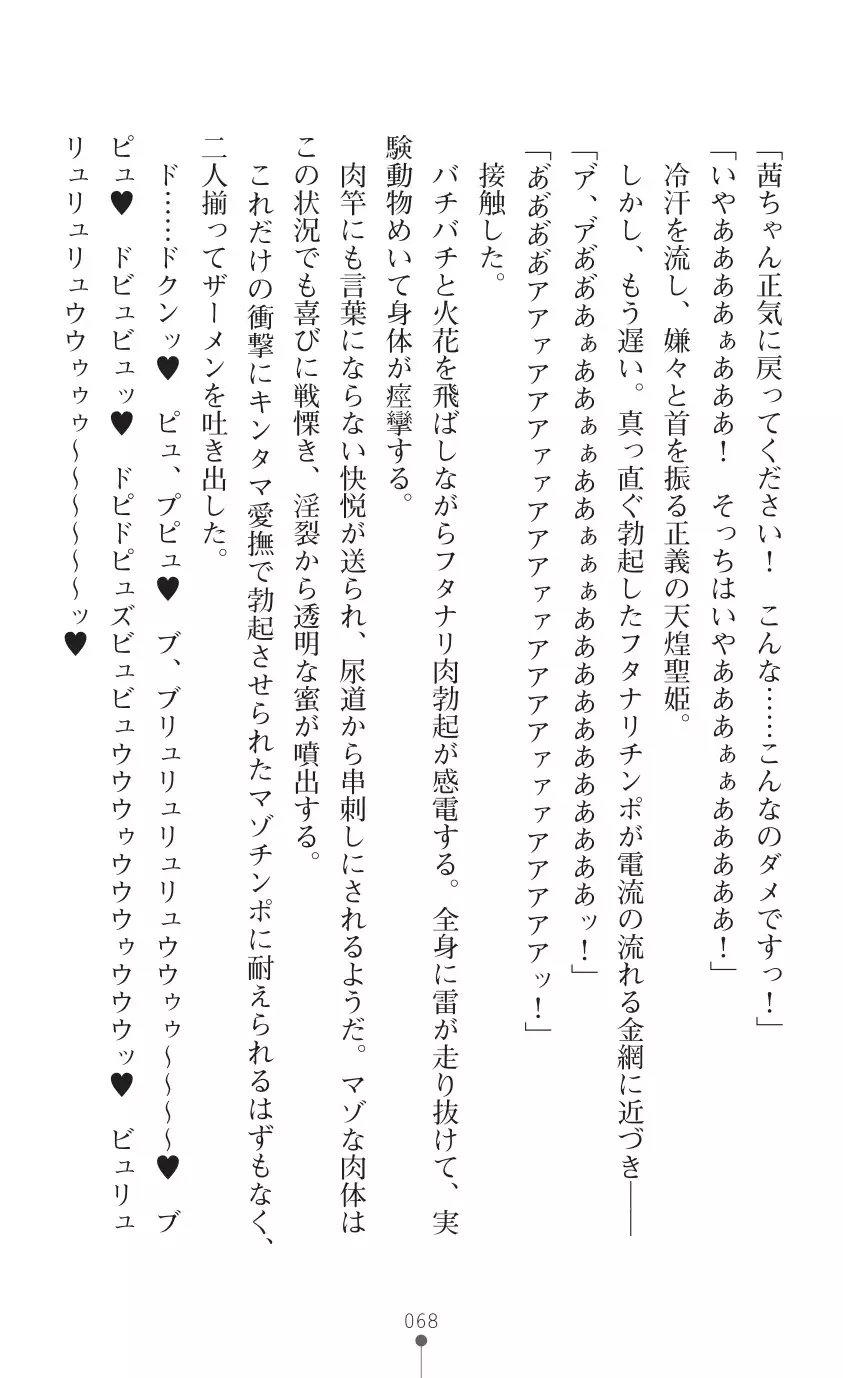 「茜ちゃん正気に戻ってください！　こんな……こんなのダメですっ！」
「いやああああぁあああ！　そっちはいやあああぁぁあああああ！」
　冷汗を流し、嫌々と首を振る正義の天煌聖姫。
　しかし、もう遅い。真っ直ぐ勃起したフタナリチンポが電流の流れる金網に近づき――
「ア゙、ア゙あ゙あ゙あぁああぁぁああぁぁぁあああああああああああッ！」
「あ゙あ゙あ゙あ゙アアァアアアァァアアアァァアアアアァァアアアアアッ！」
　接触した。
　バチバチと火花を飛ばしながらフタナリ肉勃起が感電する。全身に雷が走り抜けて、実
験動物めいて身体が痙攣する。
　肉竿にも言葉にならない快悦が送られ、尿道から串刺しにされるようだ。マゾな肉体は
この状況でも喜びに戦慄き、淫裂から透明な蜜が噴出する。
　これだけの衝撃にキンタマ愛撫で勃起させられたマゾチンポに耐えられるはずもなく、
二人揃ってザーメンを吐き出した。
　ド……ドクンッ♥　ピュ、プピュ♥　ブ、ブリュリュリュリュウウゥゥ～～～～♥　ブ
ピュ♥　ドビュビュッ♥　ドピドピュズビュビュウウウゥウウウゥウウウッ♥　ビュリュ
リュリュリュウウゥゥゥ～～～～～～ッ♥
068